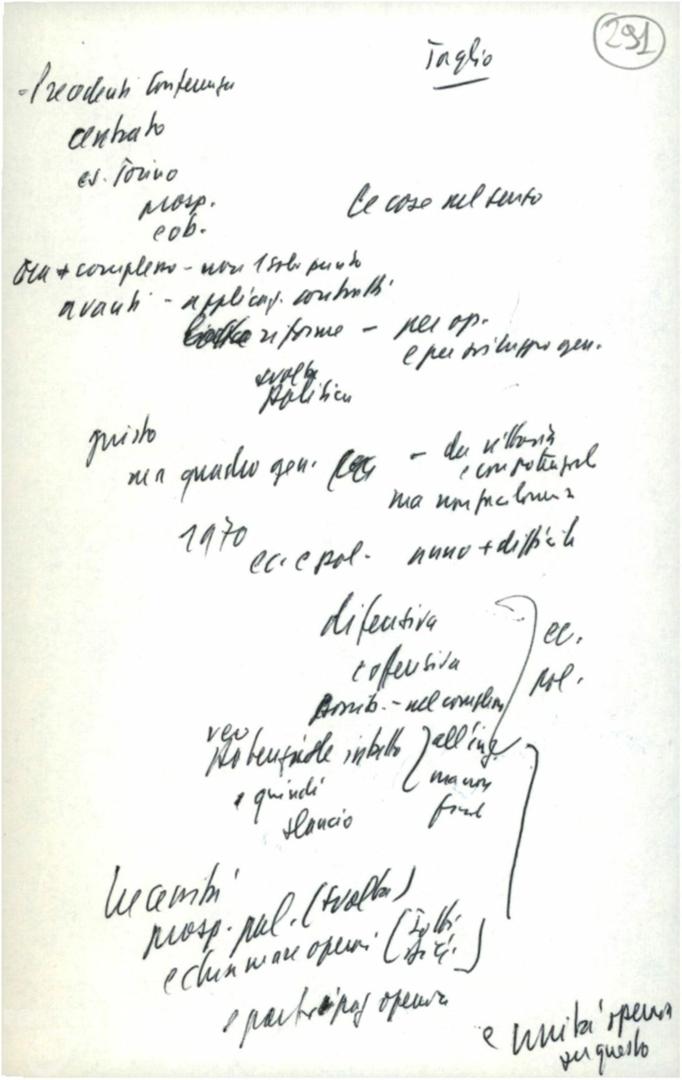 291
Taglio
- Precedenti Conferenza
centrato
es. Torino
prosp.
e ob.
Le cose nel senso
Ora + complesso - non 1 solo punto
avanti - applicaz. contratti
lotta riforme - per op.
e per sviluppo gen.
svolta
politica
giusto
ma quadro gen. - da vittoria
e con potenzial
ma non
1970
ec. e pol. anno + difficile
difensiva
e offensiva
possib. - nel compless
ec.
pol.
ver
potenziale intatto
e quindi
slancio
all'ing
ma non
final
Necessità
prosp. pol. (svolta)
e chiamare operai (tutti
e partecipaz operaia
e unità operaia
su questo